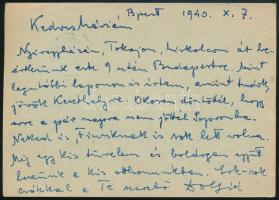 Bpest 1940. X. 7.
Kedves
Nyíregyházán, Tokajon, Miskolcon át be-
érkeztünk este 9 után Budapestre. Mint
legutóbbi lapomon is írtam, amint tudok,
jövök Keszthelyre. Okosan döntöttél, hogy
erre a pár napra nem jöttél Sopronba.
Neked is, Finuskának is sok lett volna.
Míg egy kis türelem és boldogan együtt
leszünk a kis otthonunkban. Sok-sok
csókkal a Te